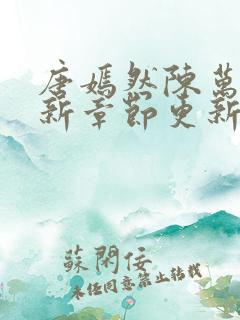 唐嫣然陳萬
新章節更新
蘇閑佞
未经同意禁止转载